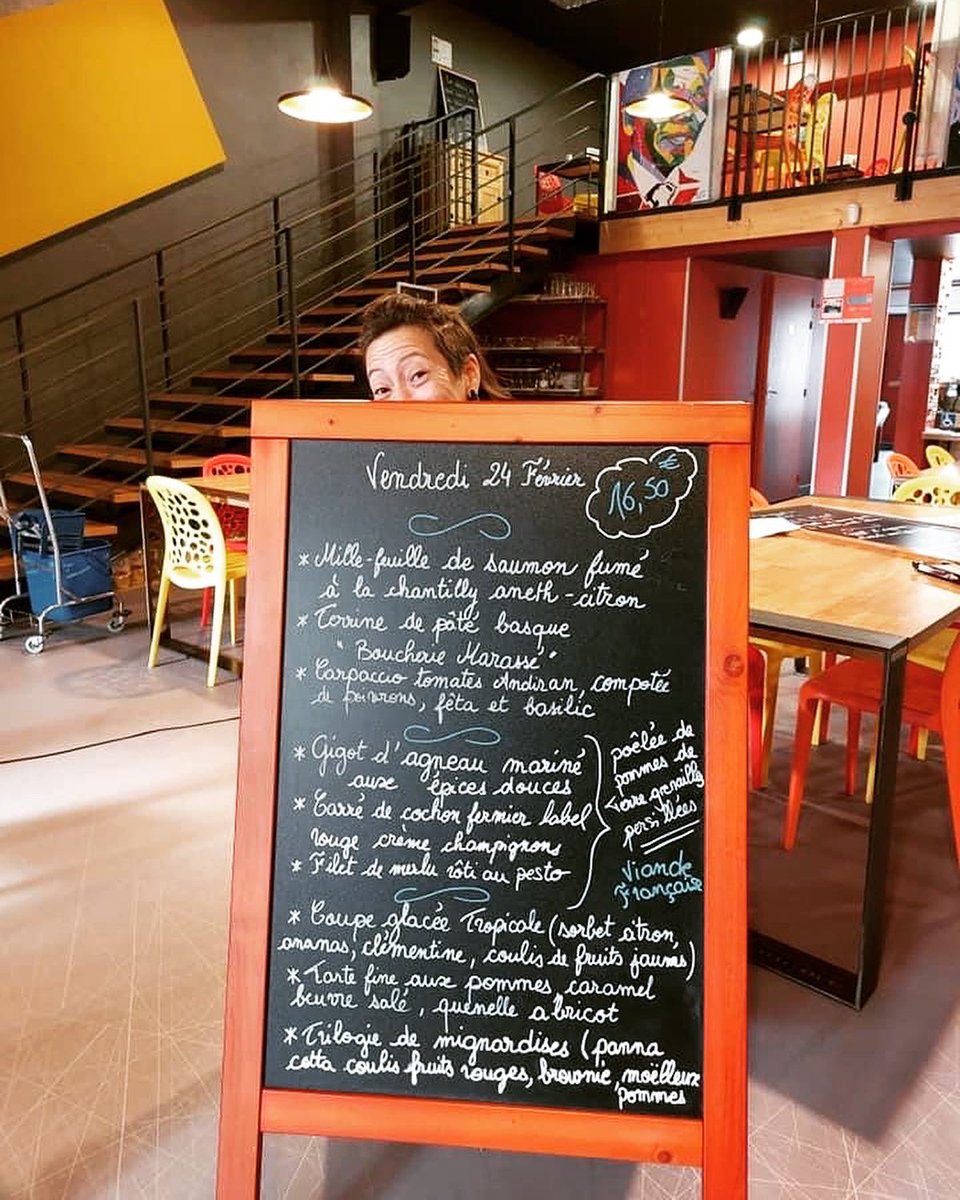 Vendredi 24 Février
16,50 €
* Mille-feuille de saumon fumé
à la chantilly aneth-citron
* Terrine de pâté basque
"Boucherie Marassé"
* Carpaccio tomates Andiran, compotée
de poivrons, fêta et basilic
* Gigot d'agneau mariné
aux épices douces
* Carré de cochon fermier label
rouge crème champignons
* Filet de merlu rôti au pesto
poêlée de
pommes de
terre grenailles
persillées
Viande
Française
* Coupe glacée Tropicale (sorbet citron,
ananas, clémentine, coulis de fruits jaunes)
* Tarte fine aux pommes, caramel
beurre salé, quenelle abricot
* Trilogie de mignardises (panna
cotta coulis fruits rouges, brownie, moëlleux
pommes